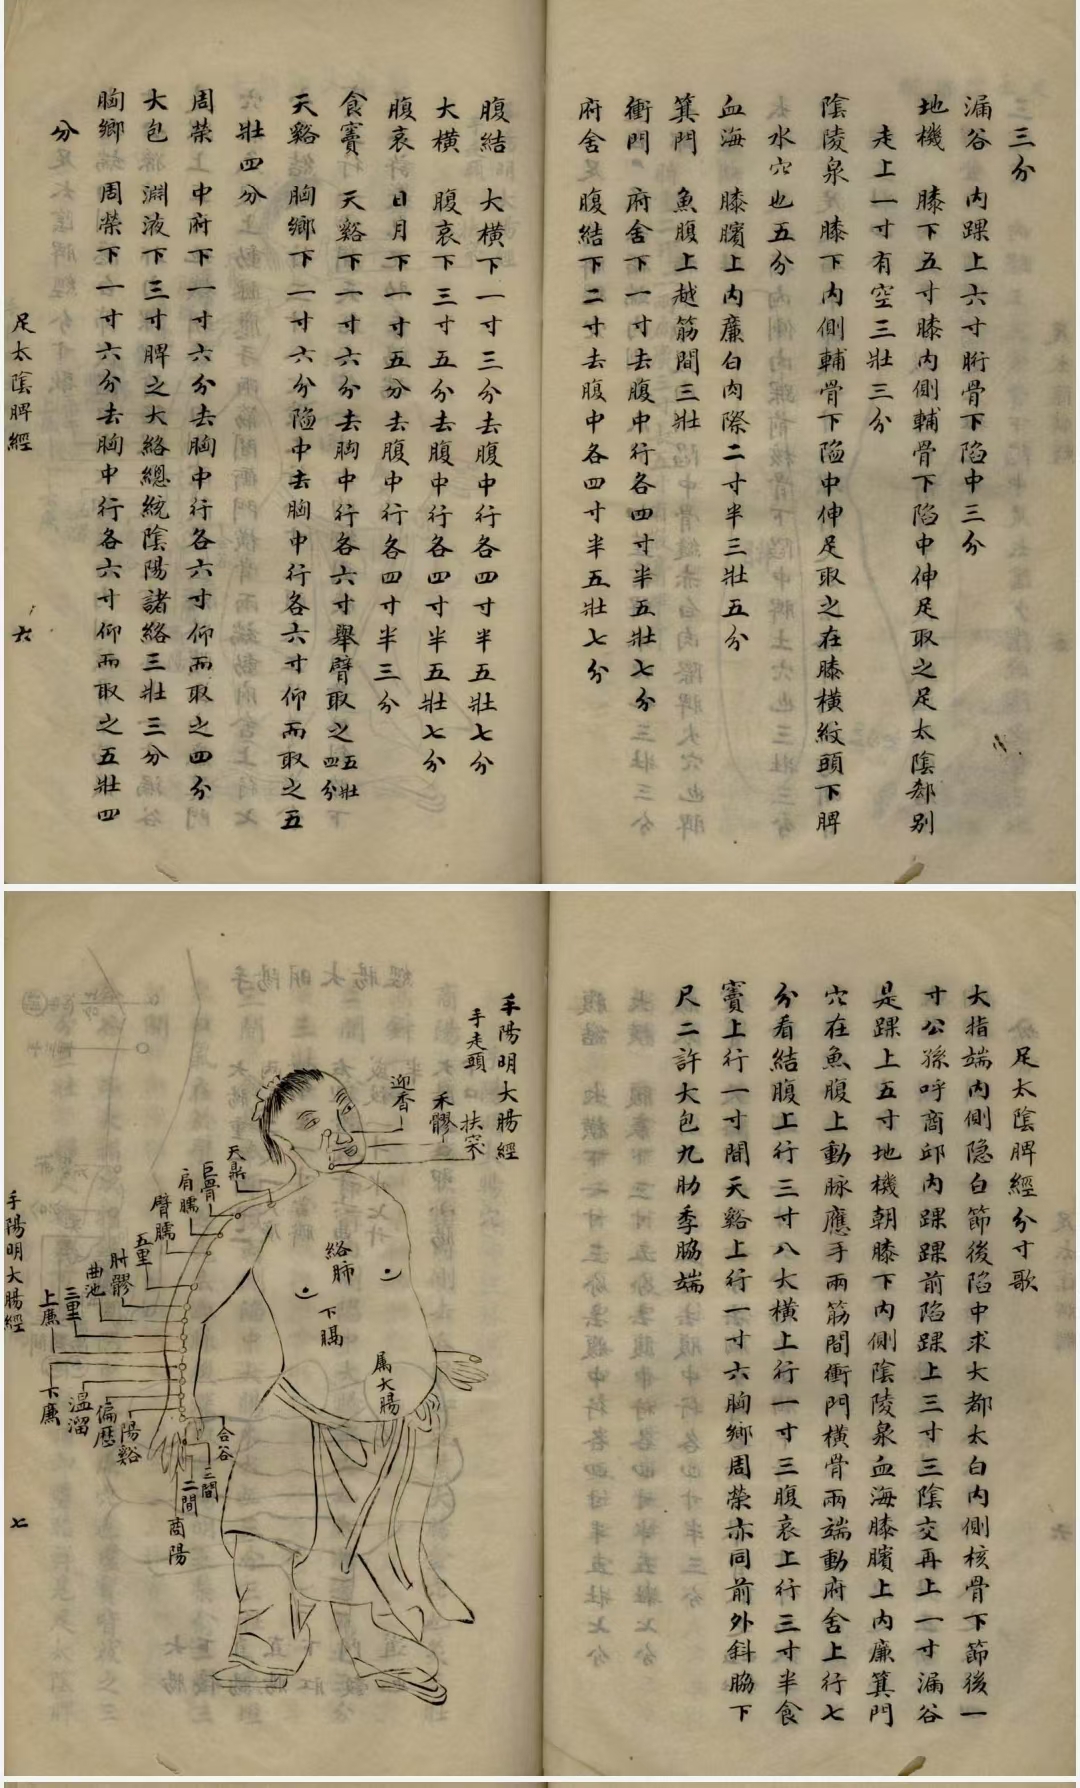 三分
漏谷　內踝上六寸胻骨下陷中三分
地機　膝下五寸膝內側輔骨下陷中伸足取之足太陰郄別
走上一寸有空三壯三分
陰陵泉　膝下內側輔骨下陷中伸足取之在膝橫紋頭下脾
水穴也五分
血海　膝臏上內廉白肉際二寸半三壯五分
箕門　魚腹上越筋間三壯
衝門　府舍下一寸去腹中行各四寸半五壯七分
府舍　腹結下二寸去腹中各四寸半五壯七分
腹結　大橫下一寸三分去腹中行各四寸半五壯七分
大橫　腹哀下三寸五分去腹中行各四寸半五壯七分
腹哀　日月下一寸五分去腹中行各四寸半三分
食竇　天谿下一寸六分去胸中行各六寸舉臂取之五壯四分
天谿　胸鄉下一寸六分陷中去胸中行各六寸仰而取之五
壯四分
周榮　中府下一寸六分去胸中行各六寸仰而取之四分
大包　淵液下三寸脾之大絡總統陰陽諸絡三壯三分
胸鄉　周榮下一寸六分去胸中行各六寸仰而取之五壯四
分
足太陰脾經
六
足太陰脾經分寸歌
大指端內側隐白節後陷中求大都太白內側核骨下節後一
寸公孫呼商邱內踝踝前陷踝上三寸三陰交再上一寸漏谷
是踝上五寸地機朝膝下內側陰陵泉血海膝臏上內廉箕門
穴在魚腹上動脉應手兩筋間衝門橫骨兩端動府舍上行七
分看結腹上行三寸八大橫上行一寸三腹哀上行三寸半食
竇上行一寸間天谿上行一寸六胸鄉周榮亦同前外斜脇下
尺二許大包九肋季脇端
手陽明大腸經
手走頭
扶突
禾髎
迎香
天鼎
巨骨
肩髃
臂臑
五里
肘髎
曲池
三里
上廉
下廉
溫溜
偏歷
陽谿
合谷
三間
二間
商陽
絡肺
下膈
属大腸
手陽明大腸經
七